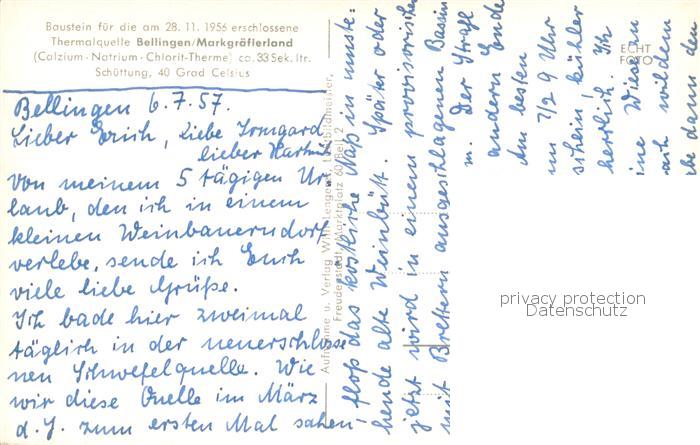 Baustein für die am 28. 11. 1956 erschlossene
Thermalquelle Bellingen/Markgräflerland
(Calzium - Natrium - Chlorit-Therme) ca. 33 Sek. ltr.
Schüttung, 40 Grad Celsius
Bellingen 6.7.57.
Lieber Erich, Liebe Irmgard
lieber Hartmut
Von meinem 5 tägigen Ur-
laub, den ich in einem
kleinen Weinbauerndorf
verlebe, sende ich Euch
viele liebe Grüße.
Ich bade hier zweimal
täglich in der neuerschlosse
nen Schwefelquelle. Wie
wir diese Quelle im März
d. J. zum ersten Mal sahen,
floß das köstliche Naß in
hende alte Weinbütt. Später oder
jetzt wird in einem provisorischen
mit Brettern ausgeschlagenen Bassin
m. Der
andern Ende
Am besten
um 7/2 9 Uhr
schein, kühler
herrlich. Ich
ine Wiesen
wildem
dann den
Aufnahme u. Verlag Willi
Freudenstadt, Marktplatz 60
ECHT
FOTO
privacy protection
Datenschutz